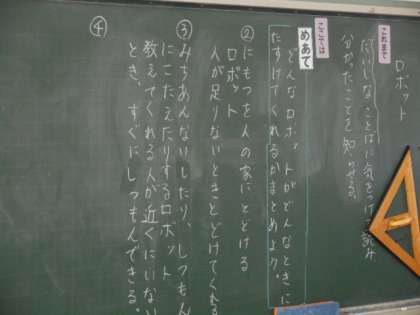 ロボット
これまで
だいじな ことばに気をつけて読み、
分かったことを知らせる。
ここでは
めあて
どんなロボットがどんなときに
たすけてくれるかまとめよう
②にもつを人の家にとどける
ロボット
人が足りないときとどけてくれる
③みちあんないしたり、しつもん
にこたえたりするロボット
教えてくれる人が近くにいない
とき、すぐにしつもんできる。
④